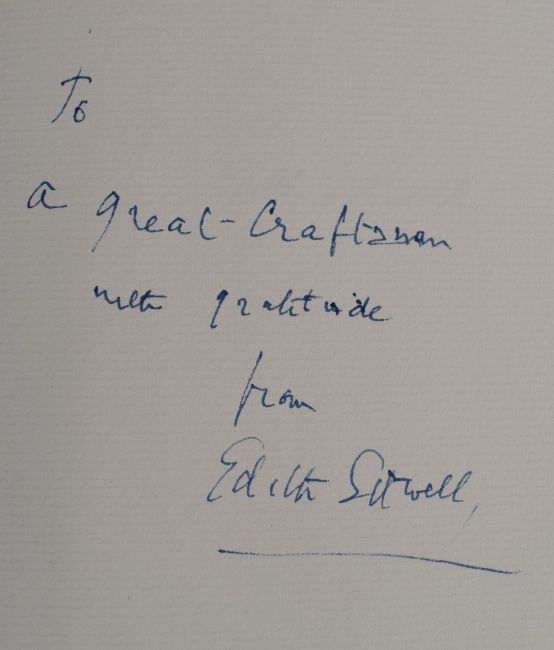 To
a great Craftsman
with gratitude
from
Edith Sitwell,